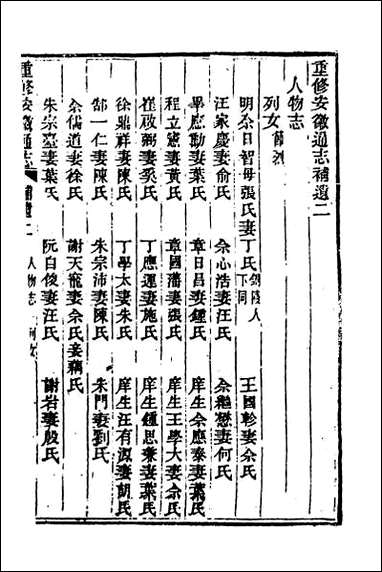 重修安徽通志補遺二
人物志
列女
明余日智母張氏妻丁氏 人下同 王國軫妻余氏
汪家慶妻俞氏 余心浩妻汪氏 余繼懋妻何氏
畢應勳妻葉氏 章日昌妻鍾氏 庠生余應泰妻葉氏
程立憲妻黃氏 章國藩妻張氏 庠生王學大妻余氏
崔政弼妻吳氏 丁應運妻施氏 庠生鍾思泰妻葉氏
徐鼎祥妻陳氏 丁學太妻朱氏 庠生汪有源妻胡氏
郜一仁妻陳氏 朱宗沛妻陳氏 朱門妻劉氏
余儒道妻徐氏 謝天龍妻余氏妾藕氏
朱宗臺妻葉氏 阮自俊妻汪氏 謝岩妻殷氏
重修安徽通志 補遺二 人物志 列女